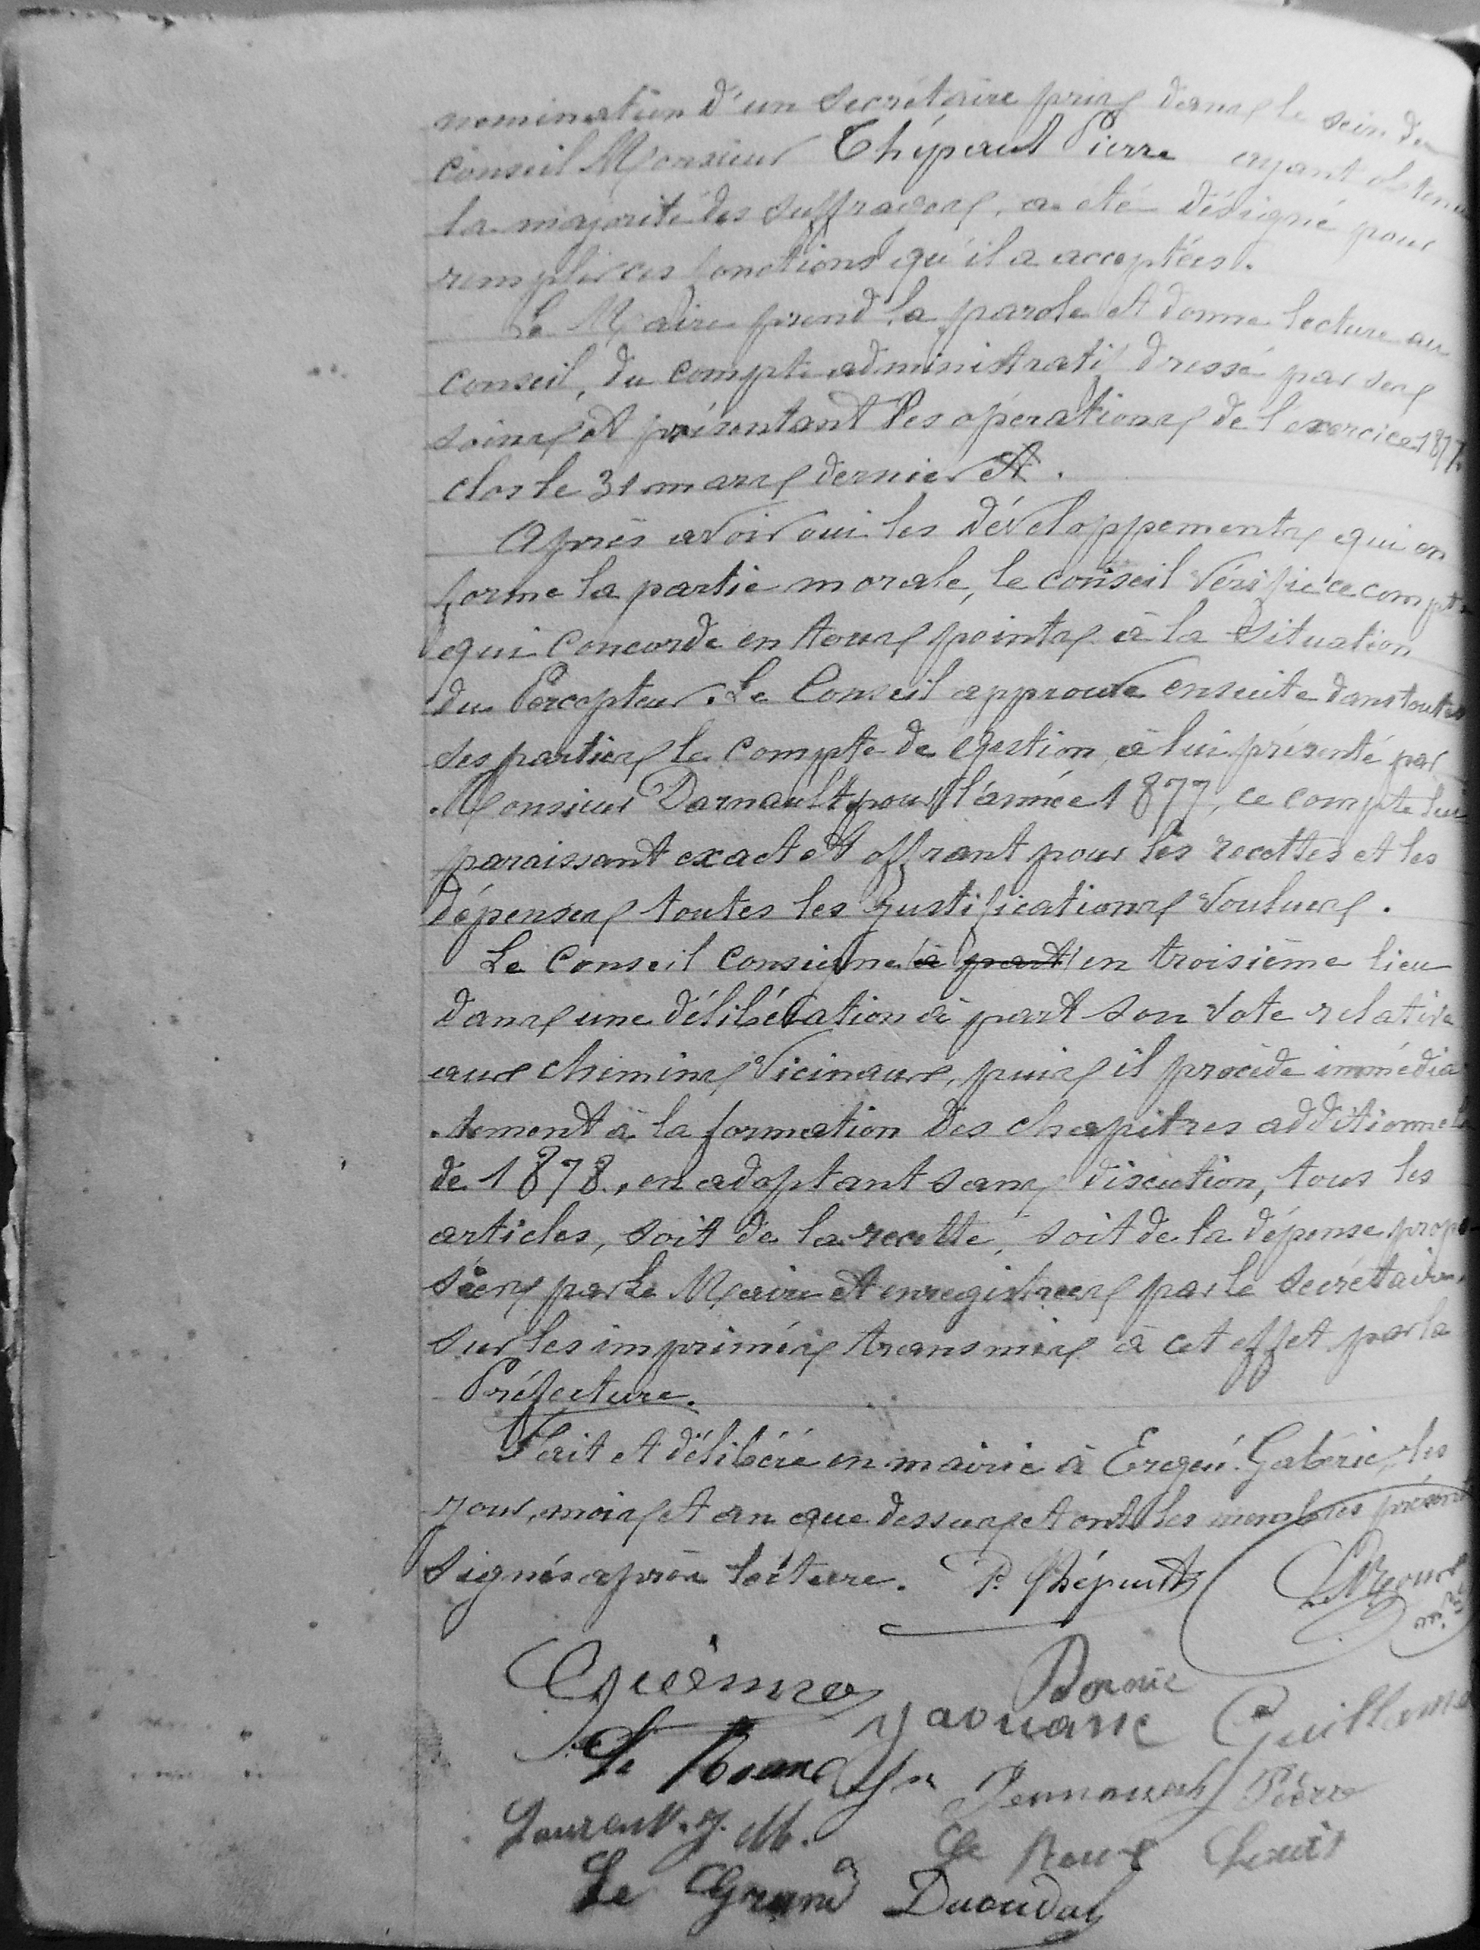 nomination d'un secrétaire pris dans le sein du
conseil Monsieur Thépaut Pierre ayant obtenu
la majorité des suffrages, a été désigné pour
remplir ces fonctions qu'il a acceptées.
Le Maire prend la parole et donne lecture au
conseil, du compte administratif dressé par ses
soins et présentant les opérations de l'exercice 1877
clos le 31 mars dernier et.
Après avoir oui les développements qui en
forme la partie morale, le conseil vérifie ce compte
qui concorde en tous points à la situation
du Percepteur. Le Conseil approuve ensuite dans toutes
ses parties le compte de gestion à lui présenté par
Monsieur Darnault pour l'année 1877, ce compte lui
paraissant exact et offrant pour les recettes et les
dépenses toutes les justifications voulues.
Le Conseil consigne à part en troisième lieu
dans une délibération à part son vote relative
aux chemins vicinaux, puis il procède immédia
tement à la formation des chapitres additionnels
de 1878, en adoptant sans discution, tous les
articles, soit de la recette, soit de la dépense propo
sées par Le Maire et enregistrees par le secrétaire,
sur les imprimés transmis à cet effet par la
Préfecture.
Fait et délibéré en mairie à Ergué-Gabéric, les
jour, mois et an que dessus et ont les membres présents
signés après lecture. P. Thépaut
Quéméré Yaouanc Guillame
Le Roux Jn Pierre
Laurent. J. M. Le Roux Louis
Le Grand